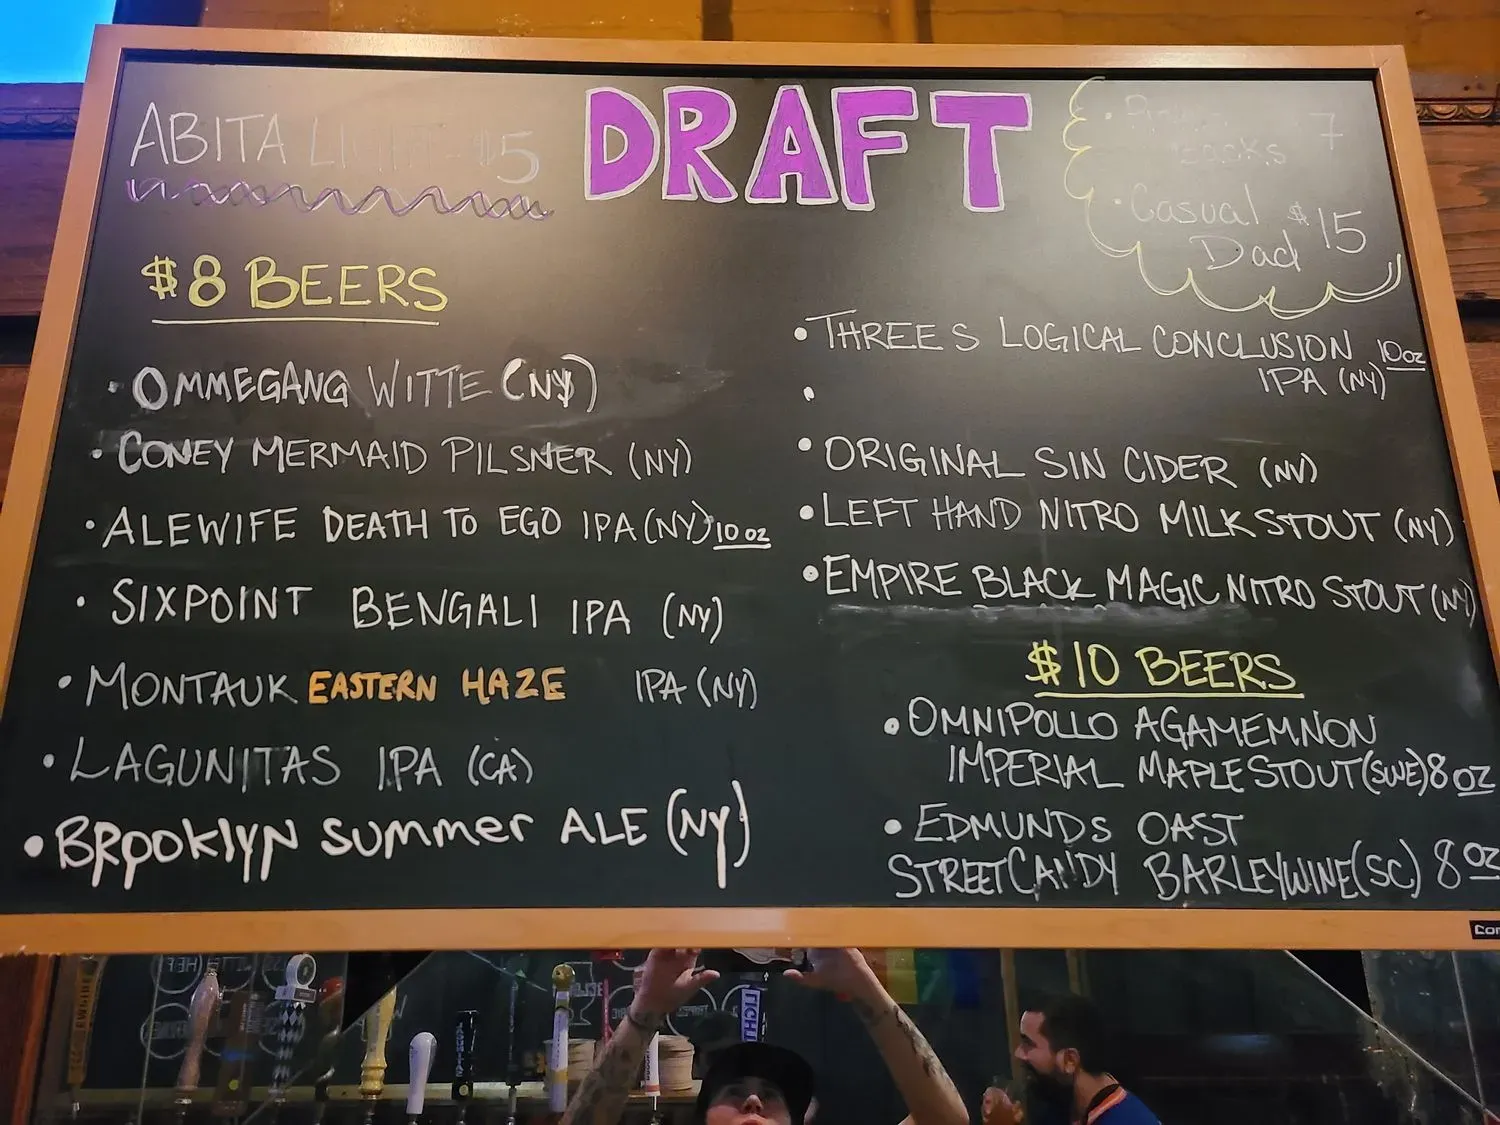 ABITA LIGHT $5
DRAFT
7
Casual $15
Dad
$8 BEERS
• OMMEGANG WITTE (NY)
• CONEY MERMAID PILSNER (NY)
• ALEWIFE DEATH TO EGO IPA (NY) 10 oz
• SIXPOINT BENGALI IPA (NY)
• MONTAUK EASTERN HAZE IPA (NY)
• LAGUNITAS IPA (CA)
• BROOKLYN SUMMER ALE (NY)
• THREES LOGICAL CONCLUSION 10 oz
IPA (NY)
•
• ORIGINAL SIN CIDER (NY)
• LEFT HAND NITRO MILK STOUT (NY)
• EMPIRE BLACK MAGIC NITRO STOUT (NY)
$10 BEERS
• OMNIPOLLO AGAMEMNON
IMPERIAL MAPLE STOUT (SWE) 8 OZ
• EDMUNDS OAST
STREET CANDY BARLEYWINE (SC) 8 OZ